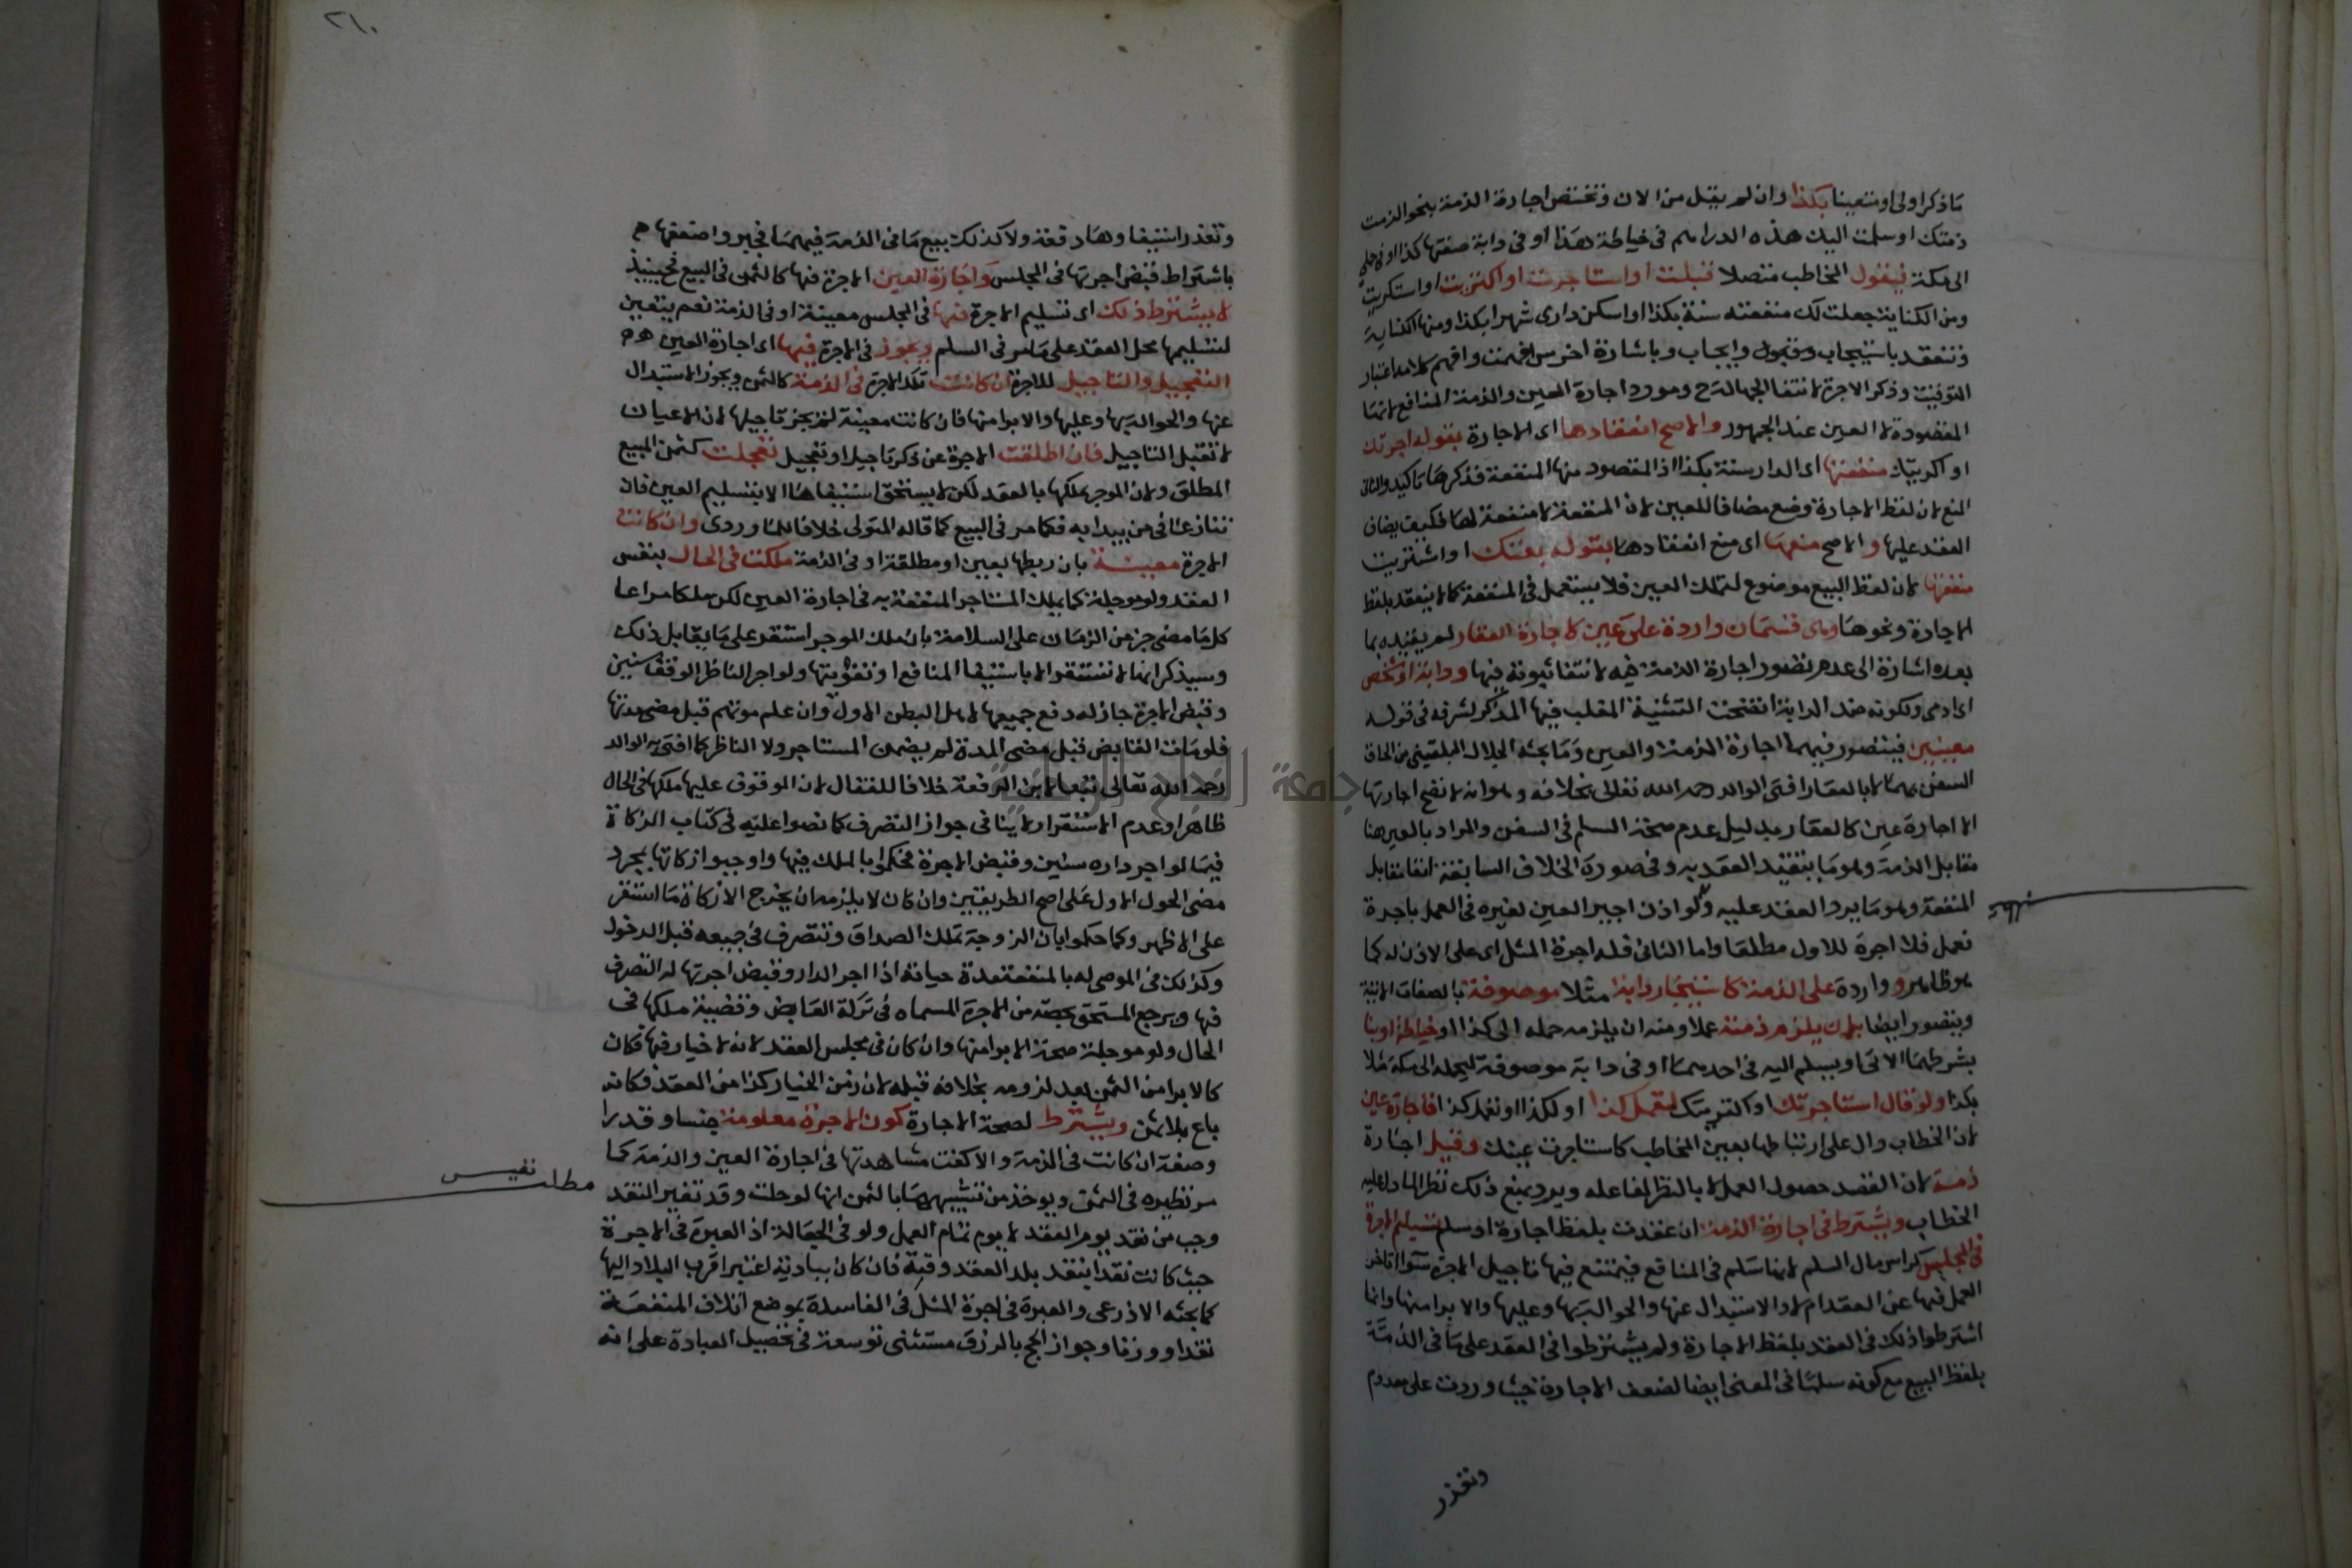 ما ذكر اولى او متعينا بكذا وان لم يقبل من الان وتختص اجارة الذمة بنحو الزمت
ذمتك او سلمت اليك هذه الدراهم فى خياطة هذا او فى دابة صفتها كذا او فى حملى
الى مكة فيقول المخاطب متصلا قبلت او استاجرت او اكتريت او استكريت
ومن الكناية جعلت لك منفعته سنة بكذا او اسكن دارى شهرا بكذا ومنها الكناية
وتنعقد باستيجاب وقبول وايجاب وباشارة اخرس افهمت وافهم كلامه اعتبار
التوقيت وذكر الاجرة لانتفا الجهالة ح ومورد اجارة العين والذمة المنافع لانها
المقصودة لا العين عند الجمهور والاصح انعقادها اى الاجارة بقوله اجرتك
او اكريتك منفعتها اى الدار سنة بكذا اذ المقصود منها المنفعة فذكرها تاكيد والثانى
المنع لان لفظ الاجارة وضع مضافا للعين لان المنفعة لا منفعة لها فكيف يضاف
العقد عليها والاصح منعها اى منع انعقادها بقوله بعتك او اشتريت
منفعتها لان لفظ البيع موضوع لتملك العين فلا يستعمل فى المنفعة كما لا ينعقد بلفظ
الاجارة ونحوها وهى قسمان واردة على عين كاجارة العقار لم يقيده بما
بعده اشارة الى عدم تصور اجارة الذمة فيه لانتفا ثبوته فيها ودابة او شخص
اى ادمى ولكونه ضد الدابة اتضحت التثنية المغلب فيها المذكر لشرفه فى قوله
معينين فيتصور فيهما اجارة الذمة والعين وما بحثه الجلال البلقينى من الحاق
السفن بهما لا بالعقار افتى الوالد رحمه الله تعالى بخلافه وهو انه لا تصح اجارتها
الا اجارة عين كالعقار بدليل عدم صحة السلم فى السفن والمراد بالعين هنا
مقابل الذمة وهو ما يتقيد العقد به وفى صورة الخلاف السابقة انفا مقابل
المنفعة وهو ما يرد العقد عليه ولو اذن اجير العين لغيره فى العمل باجرة
فعمل فلا اجرة للاول مطلقا واما الثانى فله اجرة المثل اى على الاذن له كما
هو ظاهر وواردة على الذمة كاستيجار دابة مثلا موصوفة بالصفات الاتية
ويتصور ايضا بان يلزم ذمته عملا ومنه ان يلزمه حمله الى كذا او خياطة او بنا
بشرطهما الاتى او يسلم اليه فى احدهما او فى دابة موصوفة ليحمله الى مكة مثلا
بكذا ولو قال استاجرتك او اكتريتك لتعمل كذا او لكذا او نعمل كذا فاجارة عين
لان الخطاب دال على ارتباطها بعين المخاطب كاستاجرت عينك وقيل اجارة
ذمة لان القصد حصول العمل لا بالنظر لفاعله ويرد بمنع ذلك نظرا لما دل عليه
الخطاب ويشترط فى اجارة الذمة ان عقدت بلفظ اجارة او سلم تسليم الاجرة
فى المجلس كراس مال السلم لانها سلم فى المنافع فيمتنع فيها تاجيل الاجرة سوا اتاخر
العمل فيها عن العقد ام لا والاستبدال عنها والحوالة بها وعليها والابرا منها وانما
اشترطوا ذلك فى العقد بلفظ الاجارة ولم يشترطوا فى العقد على ما فى الذمة
بلفظ البيع مع كونه سلما فى المعنى ايضا لضعف الاجارة حيث وردت على معدوم
وتعذر
٢١٠
وتعذر استيفاوها دفعة ولا كذلك بيع ما فى الذمة فيهما فجبروا ضعفها
باشتراط قبض اجرتها فى المجلس واجارة العين الاجرة فيها كالثمن فى البيع فحينئذ
لا يشترط ذلك اى تسليم الاجرة فيها فى المجلس معينة او فى الذمة نعم يتعين
لتسليمها محل العقد على ما مر فى السلم ويجوز فى الاجرة فيها اى اجارة العين
التعجيل والتاجيل للاجرة ان كانت تلك الاجرة فى الذمة كالثمن ويجوز الاستبدال
عنها والحوالة بها وعليها والابرا منها فان كانت معينة لم يجز تاجيلها لان الاعيان
لا تقبل التاجيل فان اطلقت الاجرة عن ذكر تاجيل او تعجيل تعجلت كثمن المبيع
المطلق ولان الموجر يملكها بالعقد لكن لا يستحق استيفاها الا بتسليم العين فان
تنازعا فى من يبدا به فكما مر فى البيع كما قاله المتولى خلافا للماوردى وان كانت
الاجرة معينة بان ربطها بعين او مطلقة او فى الذمة ملكت فى الحال بنفس
العقد ولو موجلة كما يملك المستاجر المنفعة به فى اجارة العين لكن ملكا مراعا
كلما مضى جز من الزمان على السلامة بان ملك الموجر استقر على ما يقابل ذلك
وسيذكر انها لا تستقر الا باستيفا المنافع او تفويتها ولو اجر الناظر الوقف سنين
وقبض الاجرة جاز له دفع جميعها لاهل البطن الاول وان علم موتهم قبل مضى مدتها
فلو مات القابض قبل مضى المدة لم يضمن المستاجر ولا الناظر كما افتى به الوالد
رحمه الله تعالى تبعا لابن الرفعة خلافا للقفال لان الموقوف عليها ملكها فى الحال
ظاهرا وعدم الاستقرار لا ينافى جواز التصرف كما نصوا عليه فى كتاب الزكاة
فيما لو اجر داره سنين وقبض الاجرة فحكموا بالملك فيها واوجبوا زكاتها بمجرد
مضى الحول الاول على اصح الطريقتين وان كان لا يلزمه ان يخرج الا زكاة ما استقر
على الاظهر وكما حكموا بان الزوجة تملك الصداق وتتصرف فى جميعه قبل الدخول
وكذلك فى الموصى له بالمنفعة مدة حياته اذا اجر الدار وقبض اجرتها له التصرف
فيها ويرجع المستحق بحصته من الاجرة المسماه فى تركة القابض وقضية ملكها فى
الحال ولو موجلة صحة الابرا منها وان كان فى مجلس العقد لانه لا خيار فيها فكان
كالابرا من الثمن بعد لزومه بخلافه قبله لان زمن الخيار كزمن العقد فكانه
باع بلا ثمن ويشترط لصحة الاجارة كون الاجرة معلومة جنسا وقدرا
وصفة ان كانت فى الذمة والا كفت مشاهدتها فى اجارة العين والذمة كما
مطلب نفيس
مر نظيره فى الثمن ويوخذ من تشبيهها بالثمن انها لو حلت وقد تغير النقد
وجب من نقد يوم العقد لا يوم تمام العمل ولو فى الجعالة اذ العبرة فى الاجرة
حيث كانت نقدا بنقد بلد العقد وقته فان كان ببادية اعتبر اقرب البلاد اليها
كما بحثه الاذرعى والعبرة فى اجرة المثل فى الفاسدة بموضع اتلاف المنفعة
نقدا ووزنا وجواز الحج بالرزق مستثنى توسعة فى تحصيل العبادة على انه
جامعة النجاح الوطنية